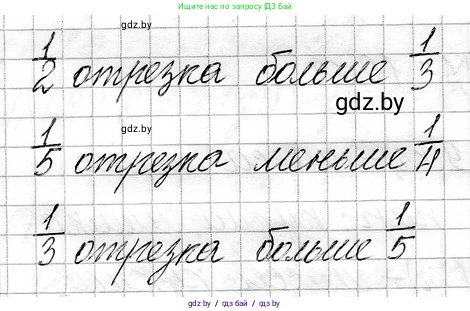 Напишите нам по запросу ГДЗ Бай
gdz.by
1/2 отрезка больше 1/3
gdz.by
gdz.by
1/5 отрезка меньше 1/4
1/3 отрезка больше 1/5
gdz.by / гдз бай / gdz.by